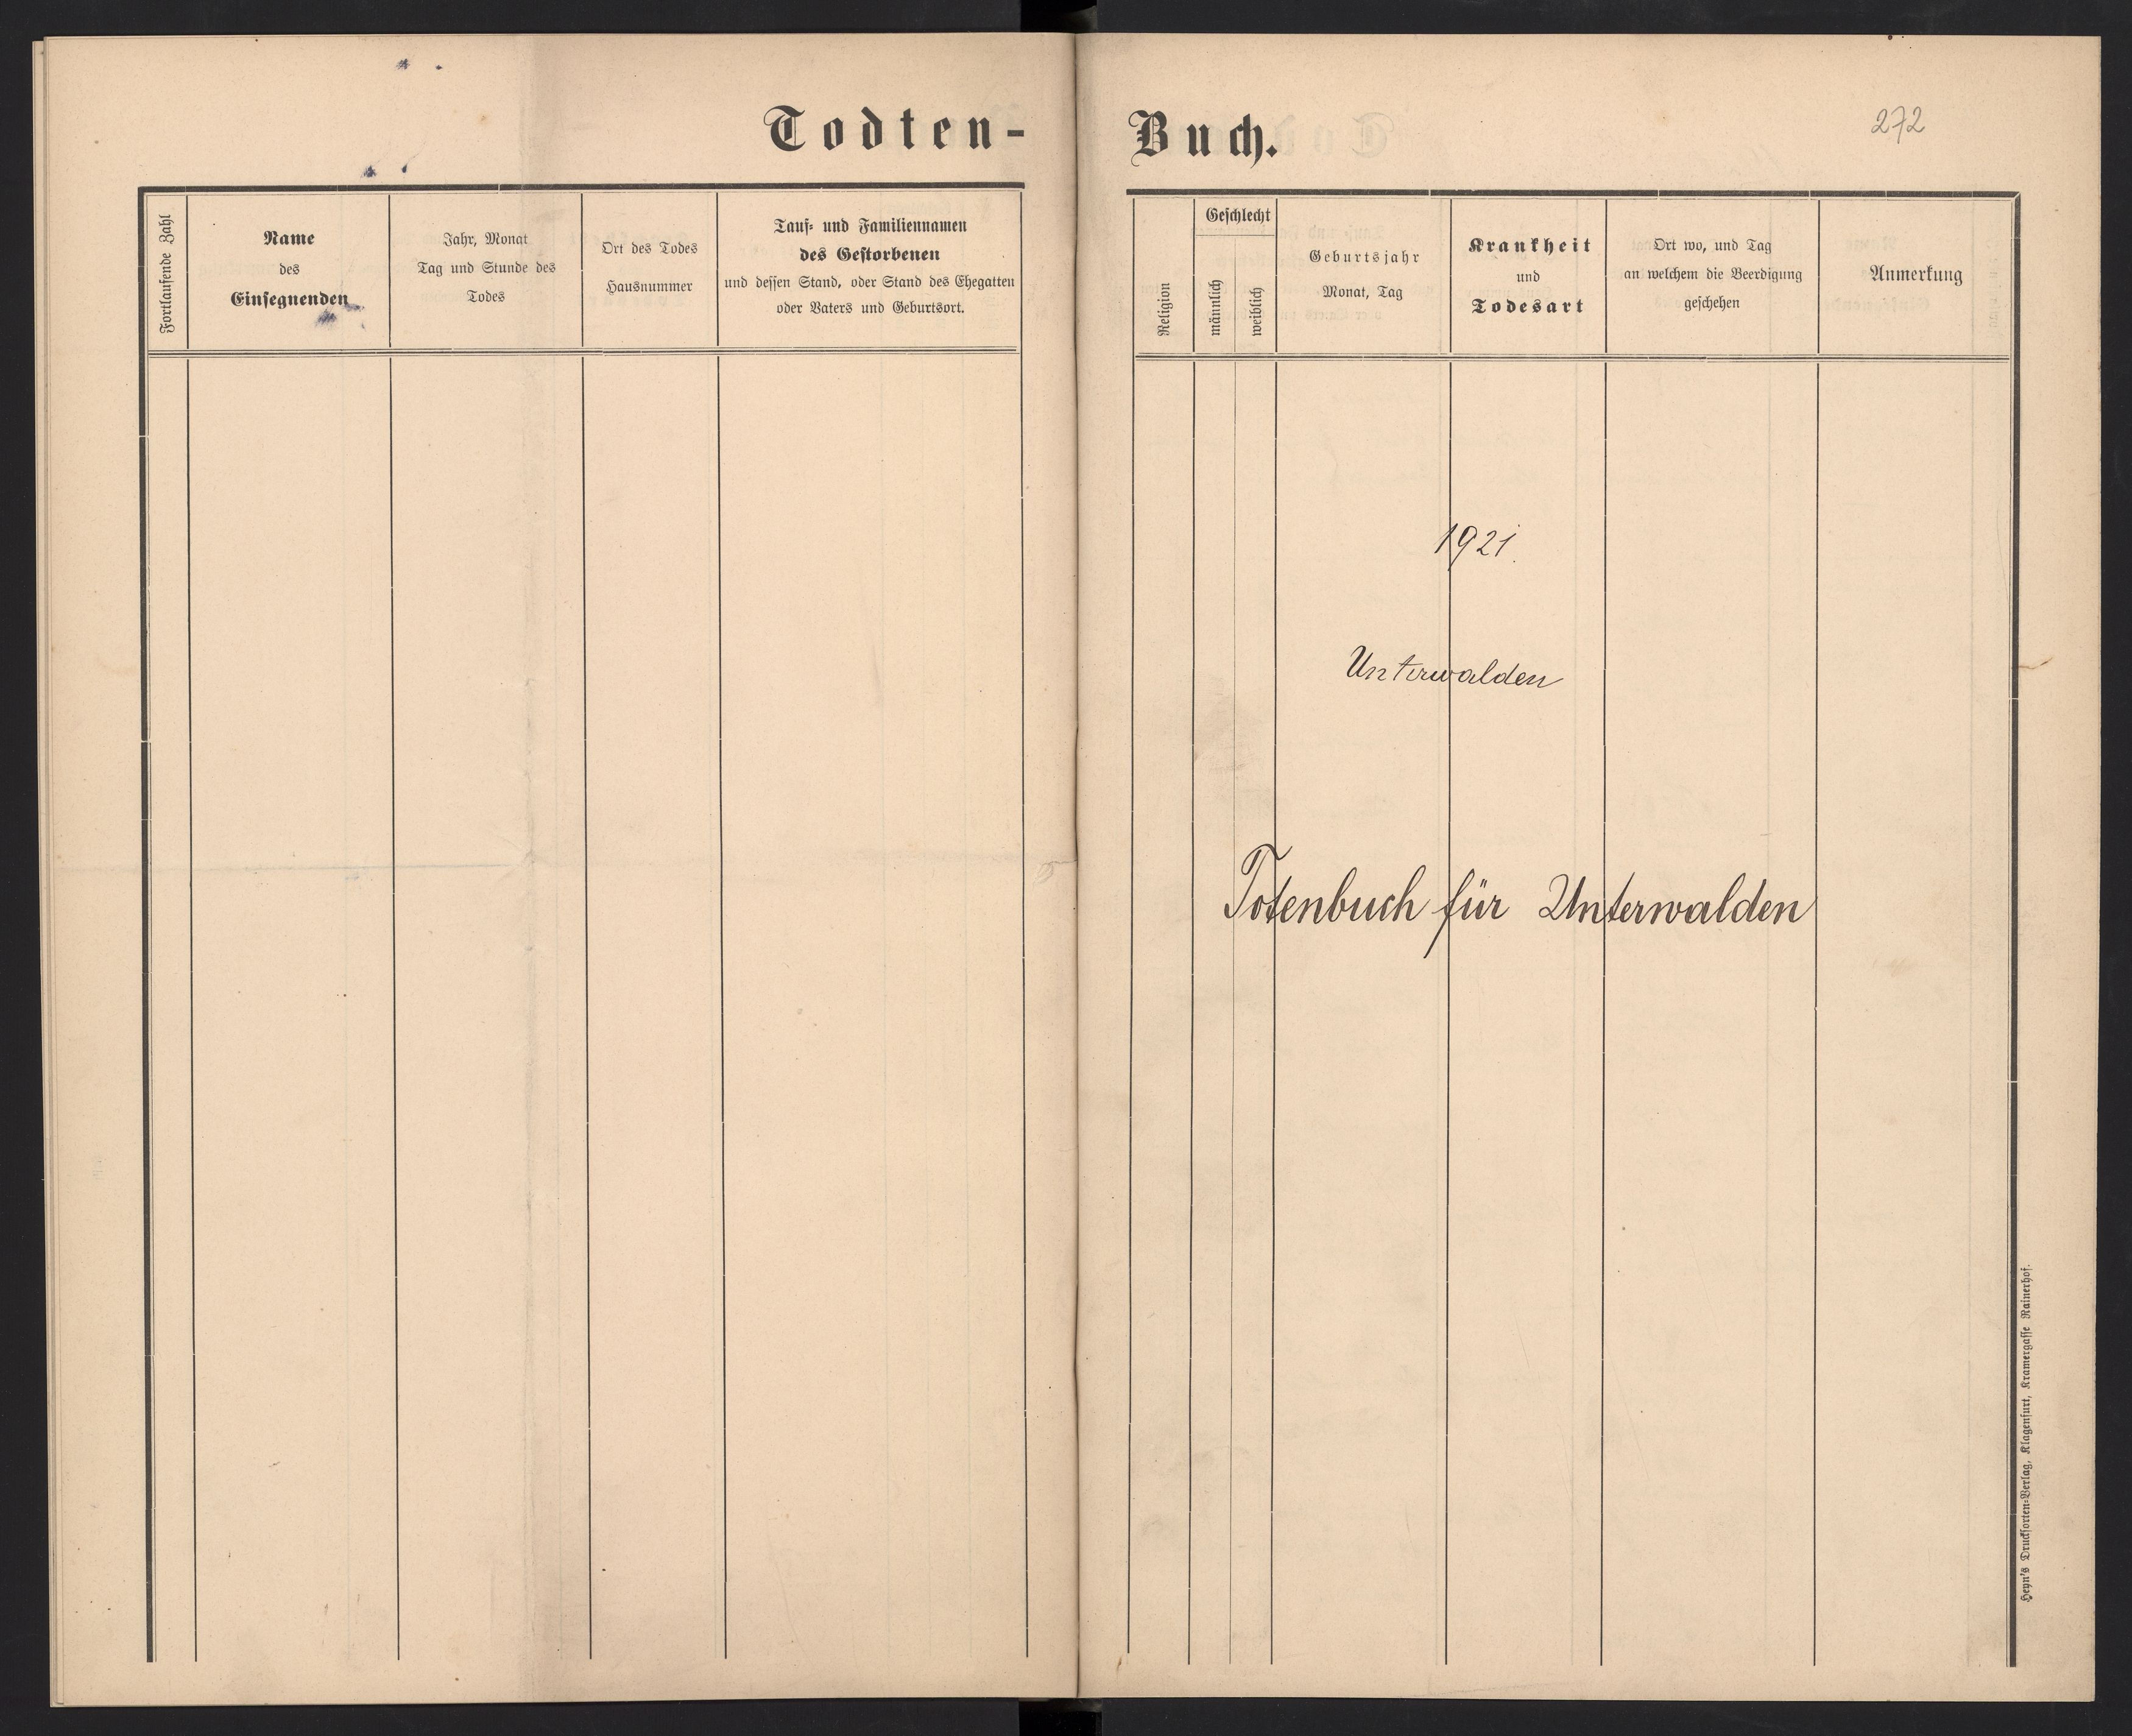 Todten-
Fortlaufende Zahl
Name
des
Einsegnenden
Jahr, Monat
Tag und Stunde des
Todes
Ort des Todes
Hausnummer
Tauf- und Familiennamen
des Gestorbenen
und dessen Stand, oder Stand des Ehegatten
oder Vaters und Geburtsort.
Buch.
272
Religion
Geschlecht
männlich
weiblich
Geburtsjahr
Monat, Tag
Krankheit
und
Todesart
Ort wo, und Tag
an welchem die Beerdigung
geschehen
Anmerkung
1921.
Unterwalden
Totenbuch für Unterwalden
Heyn's Drucksorten-Verlag, Klagenfurt, Kramergasse Rainerhof.